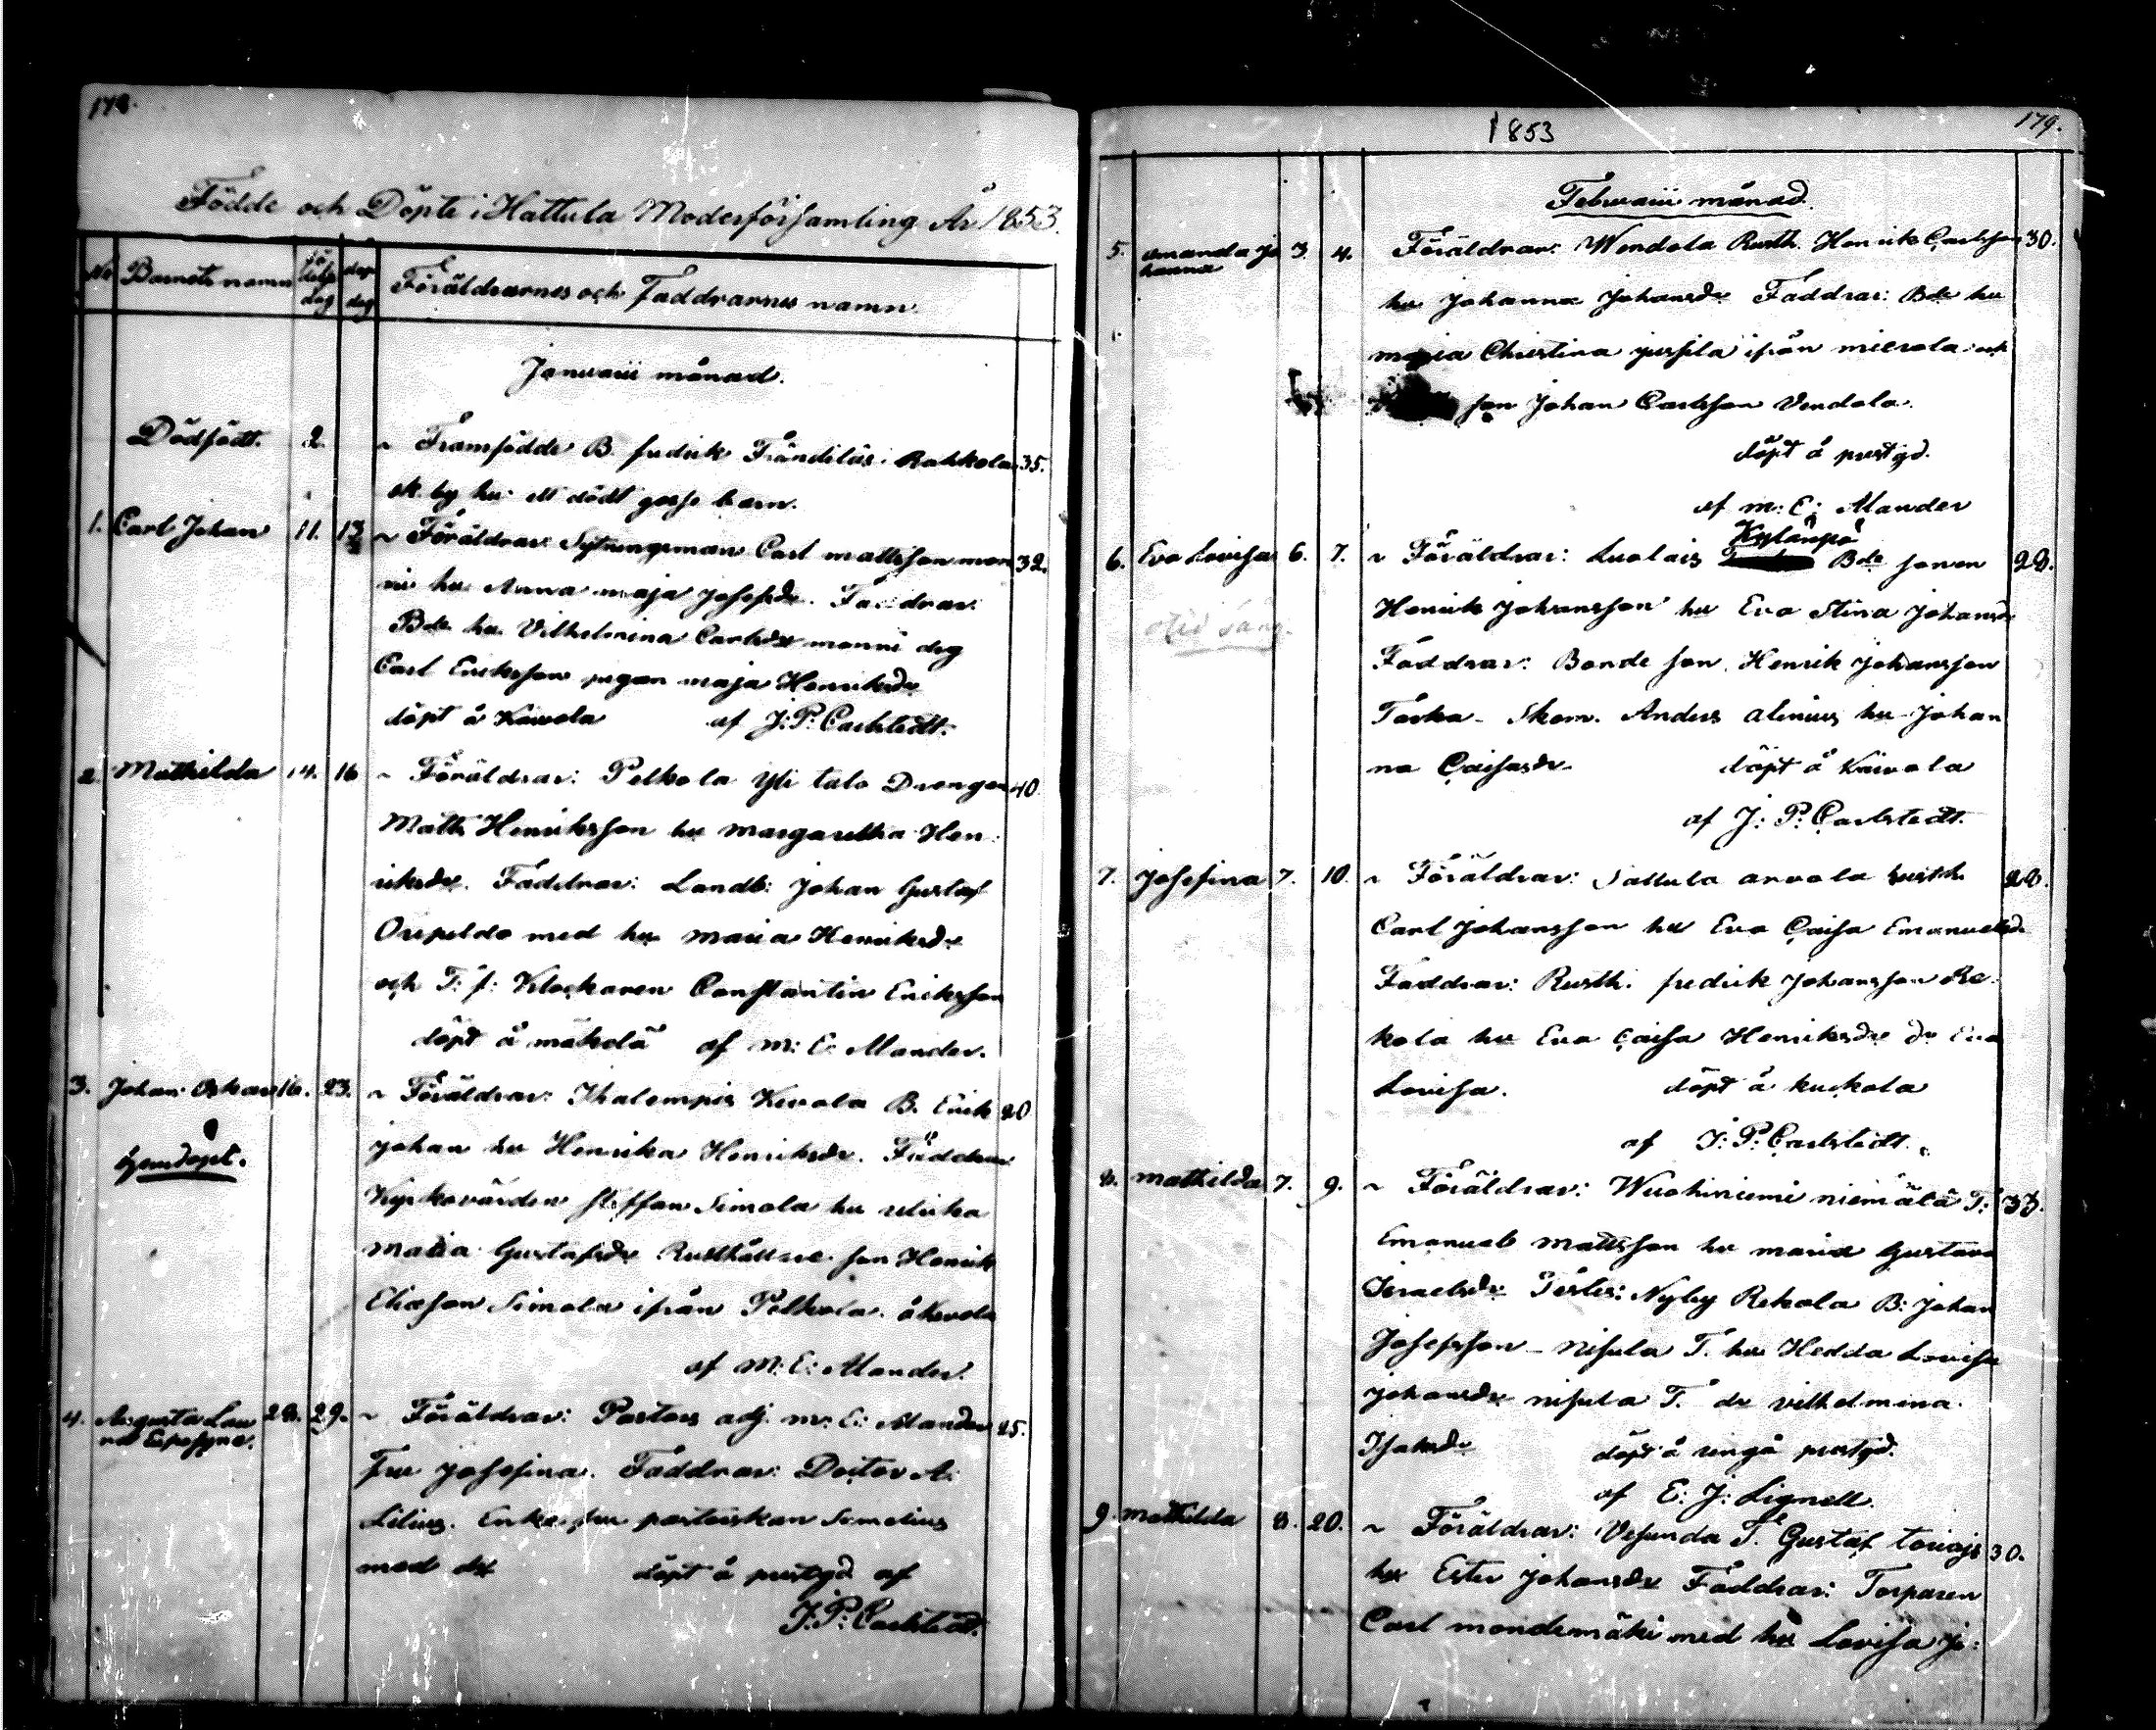 178.
Födde och Döpte i Hattula Moderförsamling År 1853.
No Barnets namn födelse dag dop dag Föräldrarnes och Faddrarnes namn
Januarii månad.
Dödfödt. 2. Framfödde B. fredrik Frändiläs: Rahkola 35.
hu ett dödt gosse barn.
1. Carl Johan 11. 13 Föräldrar: Sytningsman Carl mattsson man 32.
ni hu Anna maja Josefsdr. Faddrar:
Bde hu Vilhelmina Carlsdr manni drg
Carl Ericksson pigan maja Henriksdr
döpt å Kaivola af J: P: Carlstedt.
2 Mathilda 14. 16 Föräldrar: Pelkola Yli talo Drengen 40
Matts Henriksson hu margaretha Hen:
riksdr. Faddrar: Landb: Johan Gustaf
med hu maria Henriksdr
och T: f: Klockaren Constantin Ericksson
döpt å mäkelä af M: E: Alander.
3. Johan Oskar 16. 23. Föräldrar: Ihalempis Kevola B. Erick 20
hemdöpt.
Johan hu Henrika Henriksdr. Faddrar
Kyrkovärden Steffan Simola hu ulrika
maria Gustafsdr Rusthållare son Henrik
Eliæson Simola ifrån Pelkola. å Kevola
af M: E: Alander.
4. Augusta Lau 28. 29. Föräldrar: Pastors adj. M: E: Alander 25.
ra Eufrosyne.
fru Josefina. Faddrar: Doctor A:
Lilius. Enke fru pastorskan Simelius
med dr döpt å prestgd af
J: P: Carlstedt.
1853
179.
Februarii månad.
5. Amanda Jo 3. 4. Föräldrar: Wendola Rusth. Henrik Carlsson 30.
hanna
hu Johanna Johansdr Faddrar: Bde hu
maria Christina jussila ifrån mierola och
son Johan Carlsson Vendola.
döpt å prestgd.
af M: E: Alander
Kylänpä
6. Eva Lovisa 6. 7. Föräldrar: Luolais Bde sonen 28.
Henrik Johansson hu Eva Stina Johansdr
Faddrar: Bonde son. Henrik Johansson
Torka - Skom. Anders Alenius hu Johan
na Caisasdr döpt å Kaivola
af J: P: Carlstedt.
7. Josefina 7. 10. Föräldrar: Sattula arvola rusth. 28.
Carl Johansson hu Eva Caisa Emanuelsd.
Faddrar: Rusth. fredrik Johansson Re:
kola hu Eva Caisa Henriksdr dr Eva
Lovisa. döpt å kuckola
af J: P: Carlstedt.
8. mathilda 7. 9. Föräldrar: Wuohiniemi niemälä T: 33.
Emanuel mattsson hu maria Gustava
Israelsdr Testes: Nyby Rekola B: Johan
Josefsson - nisula T. hu Hedda Lovisa
Johansdr nisula T. dr vilhelmina
Isaksdr döpt å rengå prestgd.
af E: J: Lignell.
9. mathilda 8. 20. Föräldrar: Vesunda T. Gustaf 30.
hu Ester Johansdr Faddrar: Torparen
Carl mondemäki med hu Lovisa Jo: